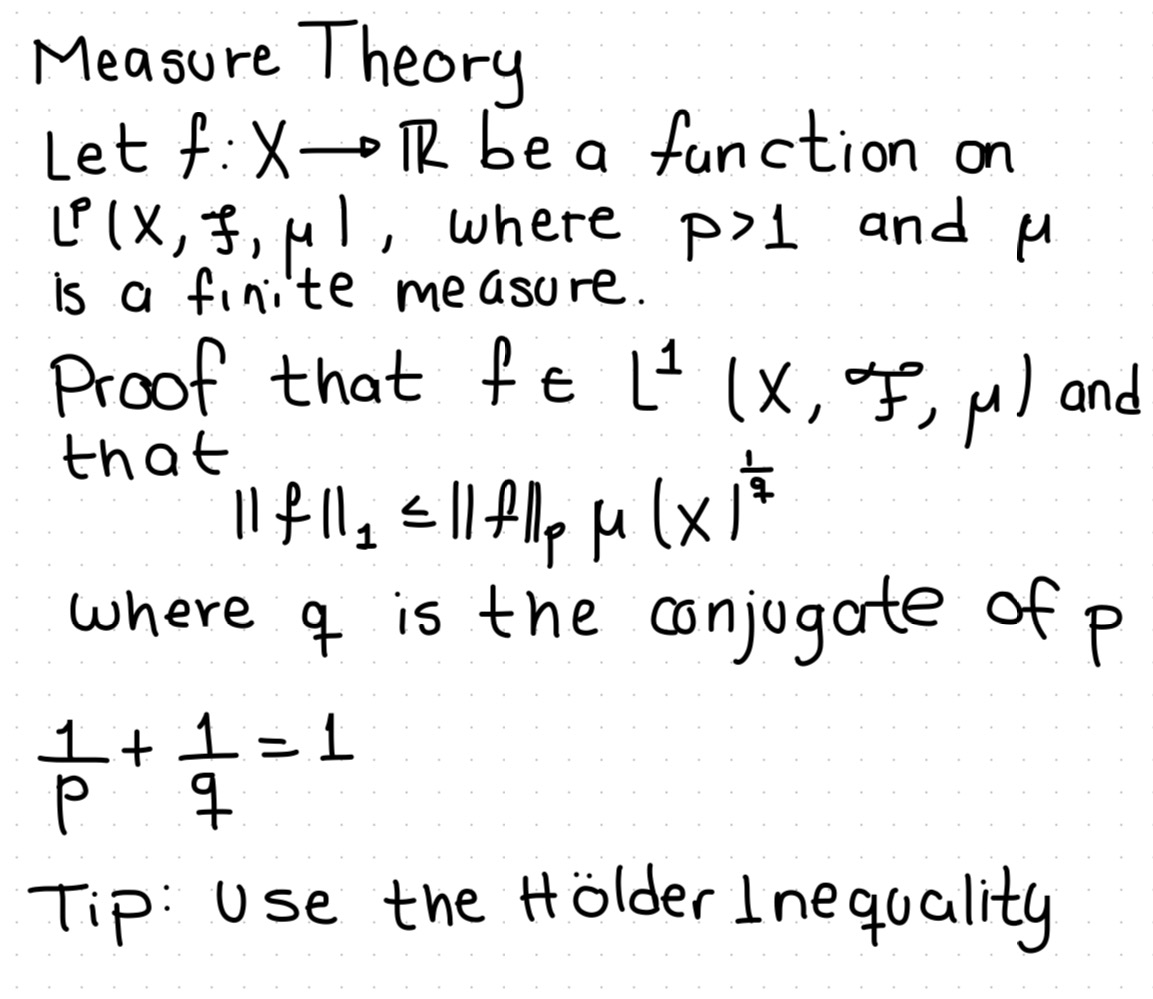 Measure Theory
Let f: X → ℝ be a function on
Lᵖ(X, ℱ, μ), where p>1 and μ
is a finite measure.
Proof that f ∈ L¹ (X, ℱ, μ) and
that
||f||₁ ≤ ||f||ₚ μ(X)^(1/q)
where q is the conjugate of p
1/p + 1/q = 1
Tip: Use the Hölder Inequality